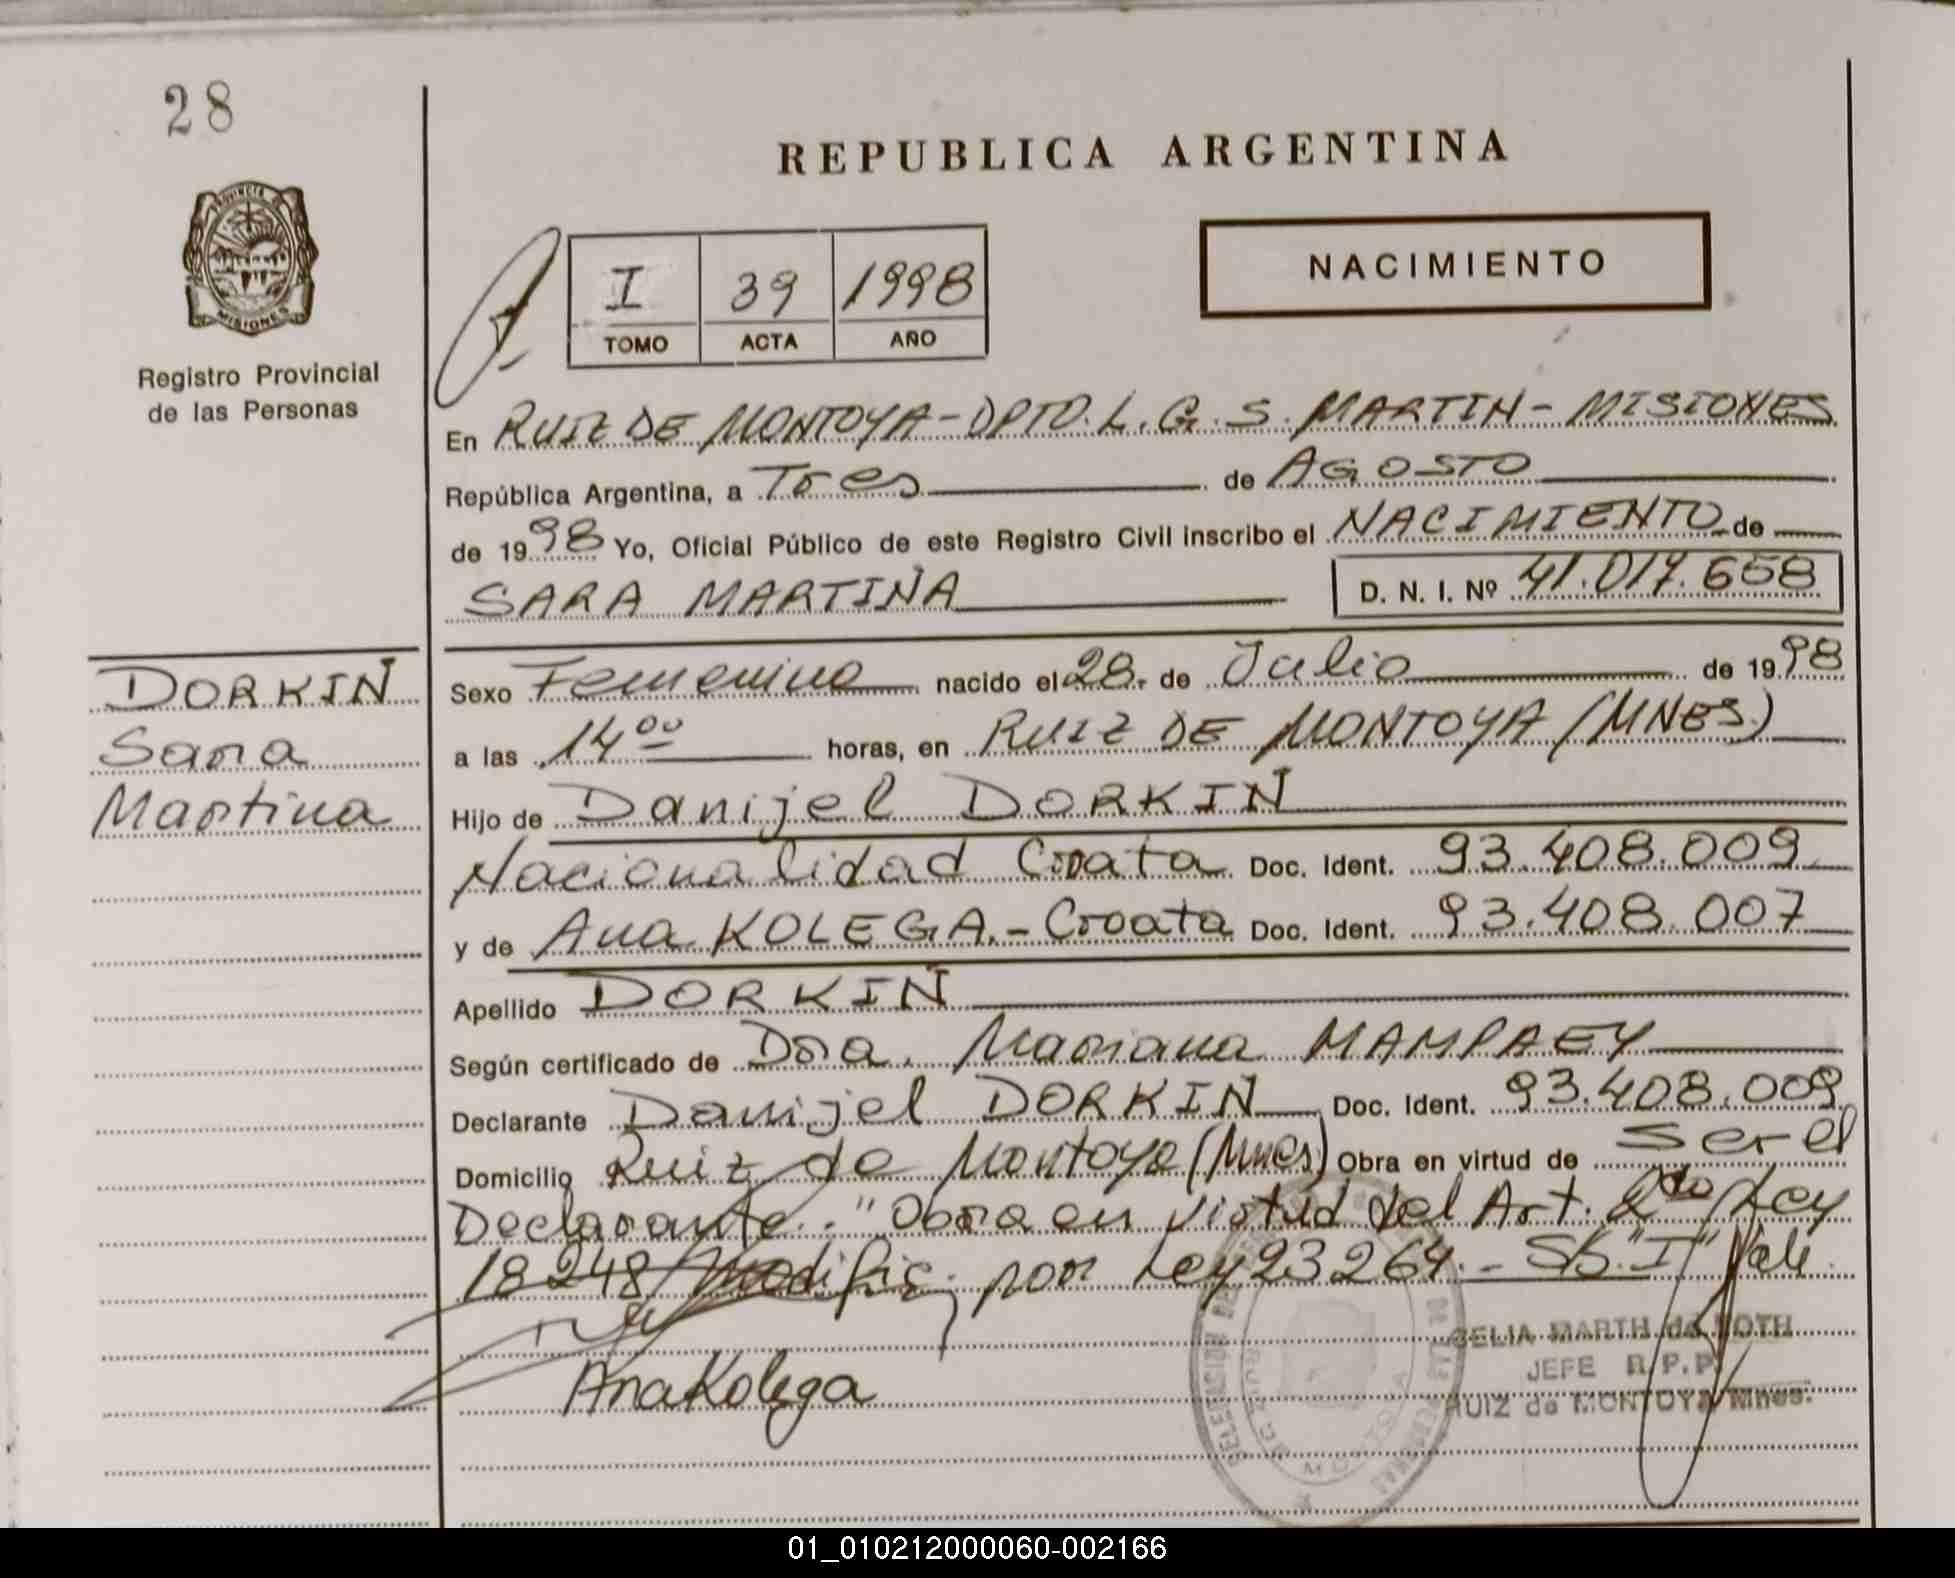 28
REPUBLICA ARGENTINA
PROVINCIA DE
MISIONES
I 39 1998
TOMO ACTA AÑO
NACIMIENTO
Registro Provincial
de las Personas
En RUIZ DE MONTOYA-DPTO. L. G. S. MARTIN - MISIONES
República Argentina, a Tres de AGOSTO
de 1998 Yo, Oficial Público de este Registro Civil inscribo el NACIMIENTO de
SARA MARTINA D. N. I. Nº 41.017.658
DORKIN
Sara
Martina
Sexo Femenino nacido el 28. de Julio de 1998
a las 14⁰⁰ horas, en RUIZ DE MONTOYA (MNES.)
Hijo de Danijel DORKIN
Nacionalidad Croata Doc. Ident. 93.408.009
y de Ana KOLEGA.- Croata Doc. Ident. 93.408.007
Apellido DORKIN
Según certificado de Dra. Mariana MAMPAEY
Declarante Danijel DORKIN Doc. Ident. 93.408.009
Domicilio Ruiz de Montoya (Mnes) Obra en virtud de ser el
Declarante.- "Obra en virtud del Art. 2do Ley
18248 modific. por Ley 23264.- S/S. "I" Vale.
Ana Kolega
CELIA MARTH de ROTH
JEFE R.P.P.
RUIZ de MONTOYA Mnes.
01_010212000060-002166